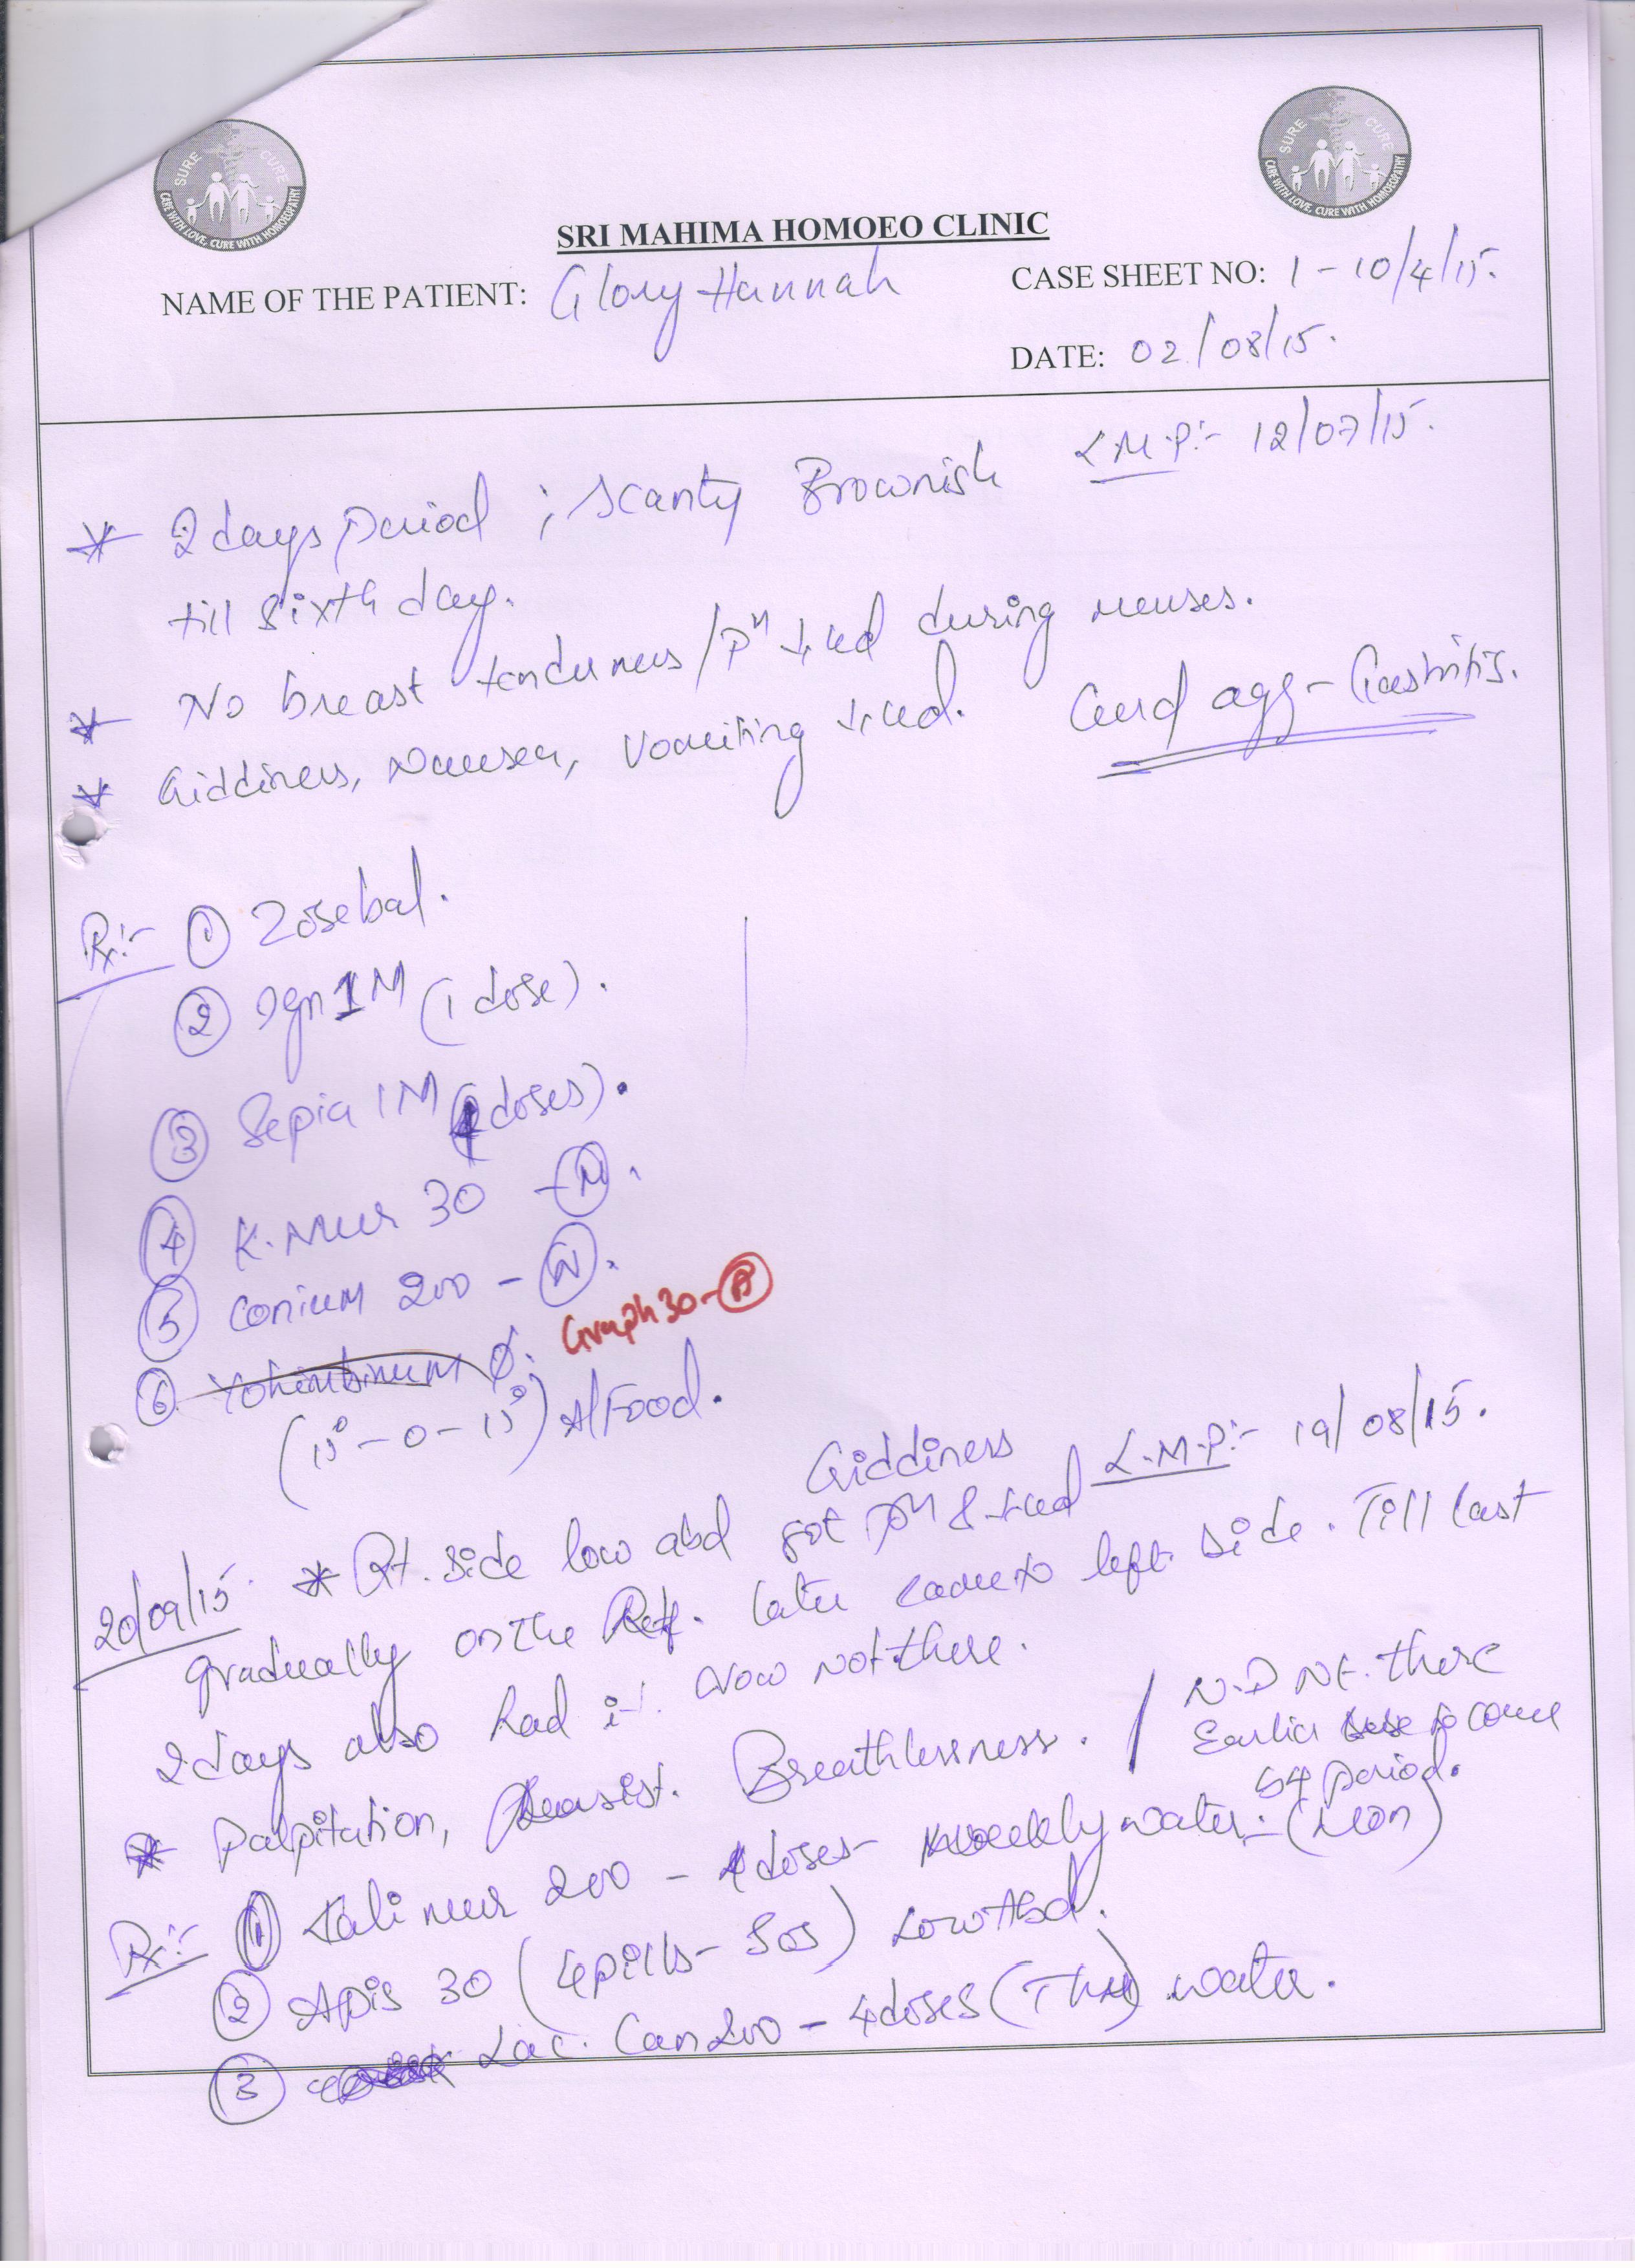 SURE CURE
CARE WITH LOVE, CURE WITH HOMOEOPATHY
SURE CURE
CARE WITH LOVE, CURE WITH HOMOEOPATHY
SRI MAHIMA HOMOEO CLINIC
NAME OF THE PATIENT: Glory Hannah
CASE SHEET NO: 1 - 10/4/15.
DATE: 02/08/15.
L.M.P:- 12/07/15.
* 2 days period ; scanty Brownish
till sixth day.
* No breast tenderness/Pn ↓ced during menses.
* Giddiness, Nausea, Vomiting ↓ced. Curd agg - Gastritis.
Rx:- ① Zosebal.
② Ign 1M (1 dose).
③ Sepia 1M ( doses).
④ K. Mur 30 - Ⓜ.
⑤ Conium 200 - Ⓝ.
Graph 30 - Ⓐ
⑥ Yohimbinum Ø.
(15° - 0 - 15°) A/Food.
L.M.P:- 19/08/15.
Giddiness
20/09/15. * Rt. side low abd got & ↓ced
gradually on the . Later came to left side. Till last
2 days also had it. Now not there.
* Palpitation, persist. Breathlessness. / N.D Nt. there
Earlier use to come
b4 period.
Rx:- ① Kali mur 200 - 4 doses - weekly water. - (Mon)
② Apis 30 (4 pills - SOS) Low Abd.
③ Lac. Can 200 - 4 doses (Thu) water.